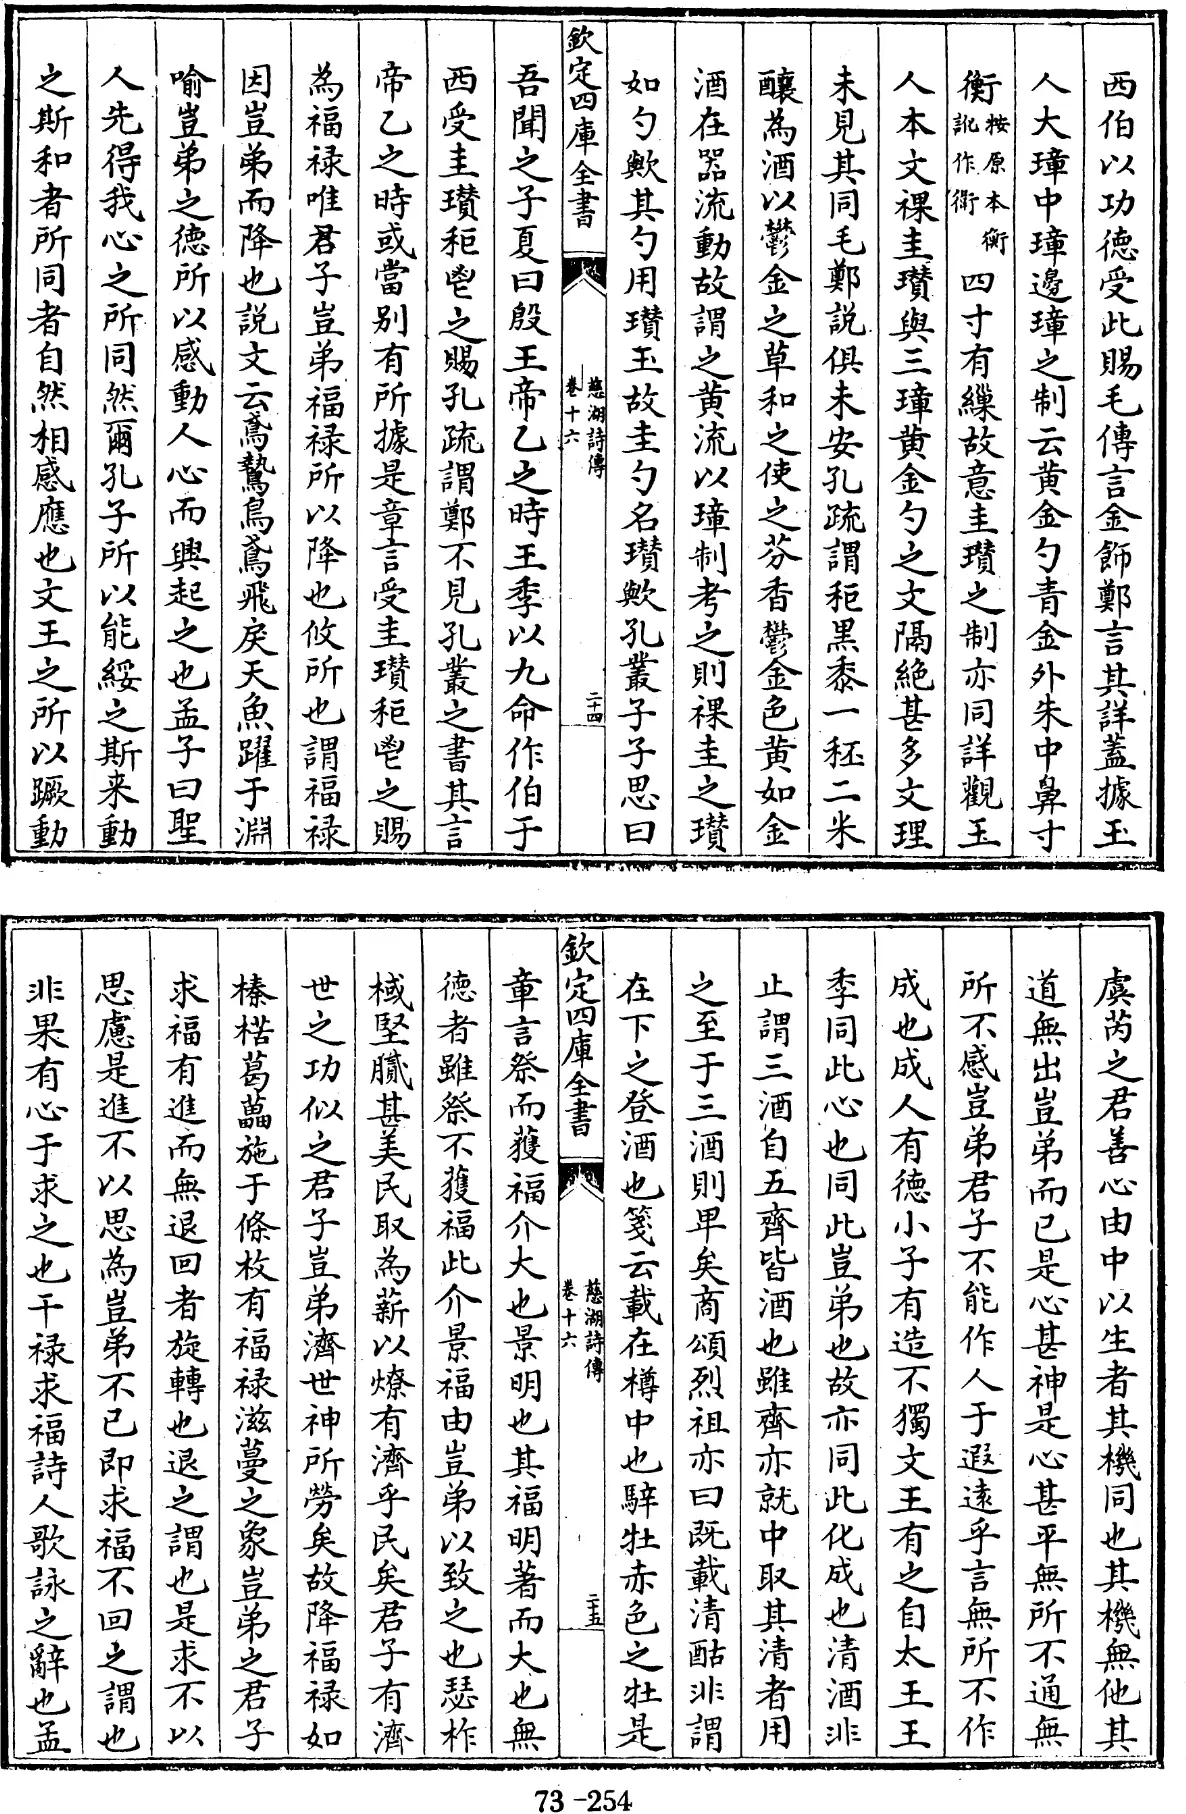 西伯以功德受此賜毛傳言金飾鄭言其詳蓋據玉
人大璋中璋邊璋之制云黄金勺青金外朱中鼻寸
衡按原本衡訛作衜四寸有繅故意圭瓚之制亦同詳觀玉
人本文祼圭瓚與三璋黄金勺之文隔絶甚多文理
未見其同毛鄭説俱未安孔疏謂秬黒黍一秠二米
釀為酒以鬱金之草和之使之芬香鬱金色黄如金
酒在器流動故謂之黄流以璋制考之則祼圭之瓚
如勺歟其勺用瓚玉故圭勺名瓚歟孔叢子子思曰
欽定四庫全書
慈湖詩傳
卷十六
二十四
吾聞之子夏曰殷王帝乙之時王季以九命作伯于
西受圭瓚秬鬯之賜孔疏謂鄭不見孔叢之書其言
帝乙之時或當别有所據是章言受圭瓚秬鬯之賜
為福禄唯君子豈弟福禄所以降也攸所也謂福禄
因豈弟而降也説文云鳶鷙鳥鳶飛戾天魚躍于淵
喻豈弟之德所以感動人心而興起之也孟子曰聖
人先得我心之所同然爾孔子所以能綏之斯来動
之斯和者所同者自然相感應也文王之所以蹶動
虞芮之君善心由中以生者其機同也其機無他其
道無出豈弟而已是心甚神是心甚平無所不通無
所不感豈弟君子不能作人于遐逺乎言無所不作
成也成人有德小子有造不獨文王有之自太王王
季同此心也同此豈弟也故亦同此化成也清酒非
止謂三酒自五齊皆酒也雖齊亦就中取其清者用
之至于三酒則卑矣商頌烈祖亦曰既載清酤非謂
在下之登酒也箋云載在樽中也騂牡赤色之牡是
欽定四庫全書
慈湖詩傳
卷十六
二十五
章言祭而獲福介大也景明也其福明著而大也無
德者雖祭不獲福此介景福由豈弟以致之也瑟柞
棫堅膩甚美民取為薪以燎有濟乎民矣君子有濟
世之功似之君子豈弟濟世神所勞矣故降福禄如
榛楛葛藟施于條枚有福禄滋蔓之象豈弟之君子
求福有進而無退回者旋轉也退之謂也是求不以
思慮是進不以思為豈弟不已即求福不回之謂也
非果有心于求之也干禄求福詩人歌詠之辭也孟
73-254